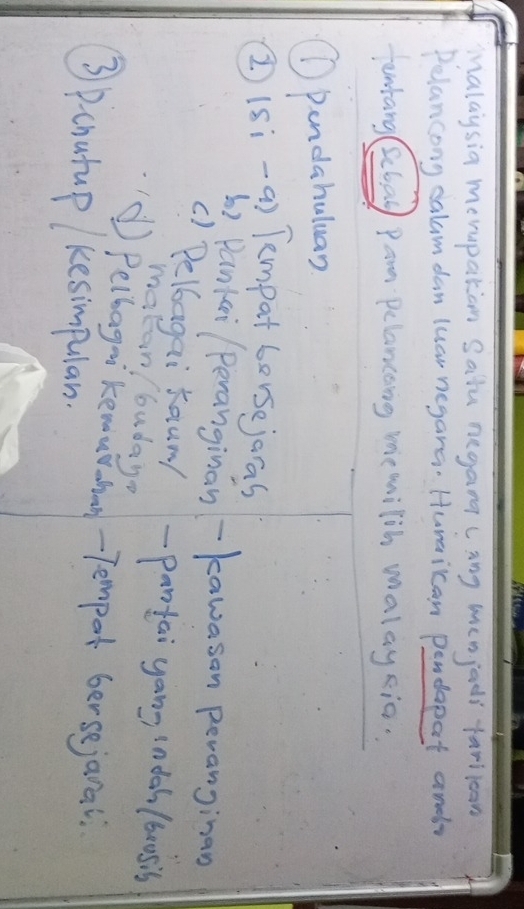 Malaysia merupakan satu negara yang menjadi tarikan
Pelancong dalam dan luar negara. Huraikan pendapat anda
tentang sebab para pelancong memilih Malaysia.
① Pendahuluan.
② Isi - a) Tempat bersejarah
b) Pantai / Peranginan
c) Pelbagai kaum /
makan / budaya
d) Pelbagai kemudahan
③ P-enutup / Kesimpulan.
- Kawasan peranginan
- Pantai yang indah / bersih
- Tempat bersejarah.